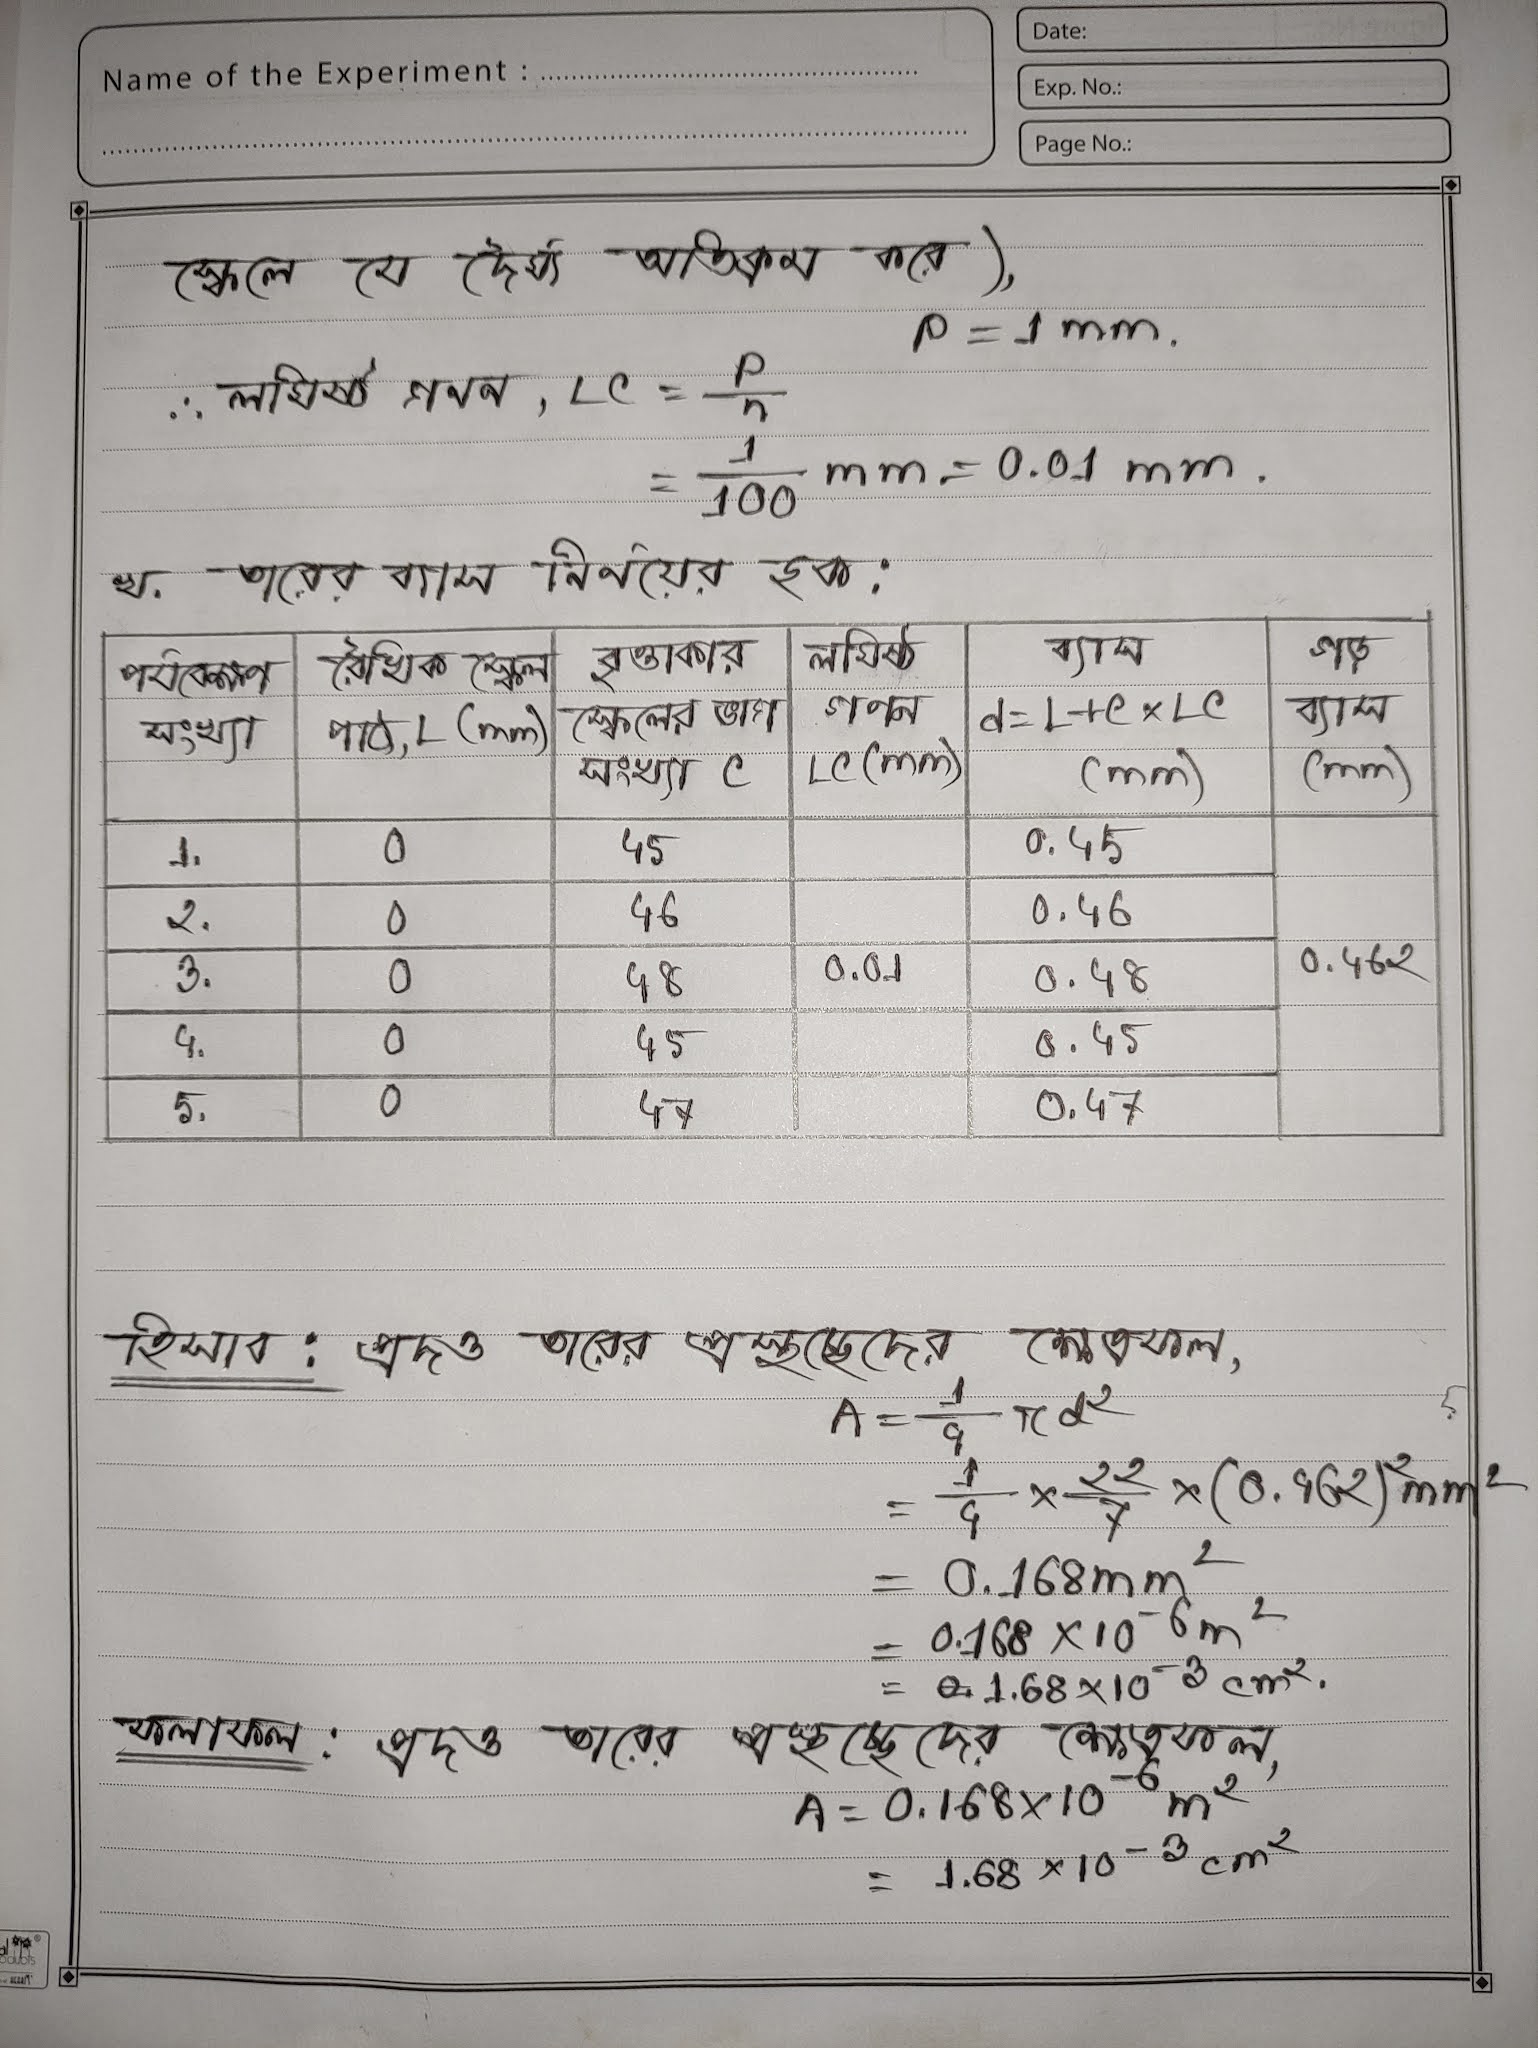 Name of the Experiment :
Date:
Exp. No.:
Page No.:
স্কেলে যে দৈর্ঘ্য অতিক্রম করে),
P = 1 mm.
∴ লঘিষ্ঠ গণন, LC = P/n
= 1/100 mm = 0.01 mm.
খ. তারের ব্যাস নির্ণয়ের ছক:
পর্যবেক্ষণ সংখ্যা | রৈখিক স্কেল পাঠ, L (mm) | বৃত্তাকার স্কেলের ভাগ সংখ্যা C | লঘিষ্ঠ গণন LC (mm) | ব্যাস d=L+C×LC (mm) | গড় ব্যাস (mm)
1. | 0 | 45 | | 0.45 |
2. | 0 | 46 | | 0.46 |
3. | 0 | 48 | 0.01 | 0.48 | 0.462
4. | 0 | 45 | | 0.45 |
5. | 0 | 47 | | 0.47 |
হিসাব: প্রদত্ত তারের প্রস্থচ্ছেদের ক্ষেত্রফল,
A = 1/4 πd²
= 1/4 × 22/7 × (0.462)² mm²
= 0.168 mm²
= 0.168 × 10⁻⁶ m²
= 1.68 × 10⁻³ cm².
ফলাফল: প্রদত্ত তারের প্রস্থচ্ছেদের ক্ষেত্রফল,
A = 0.168 × 10⁻⁶ m²
= 1.68 × 10⁻³ cm²